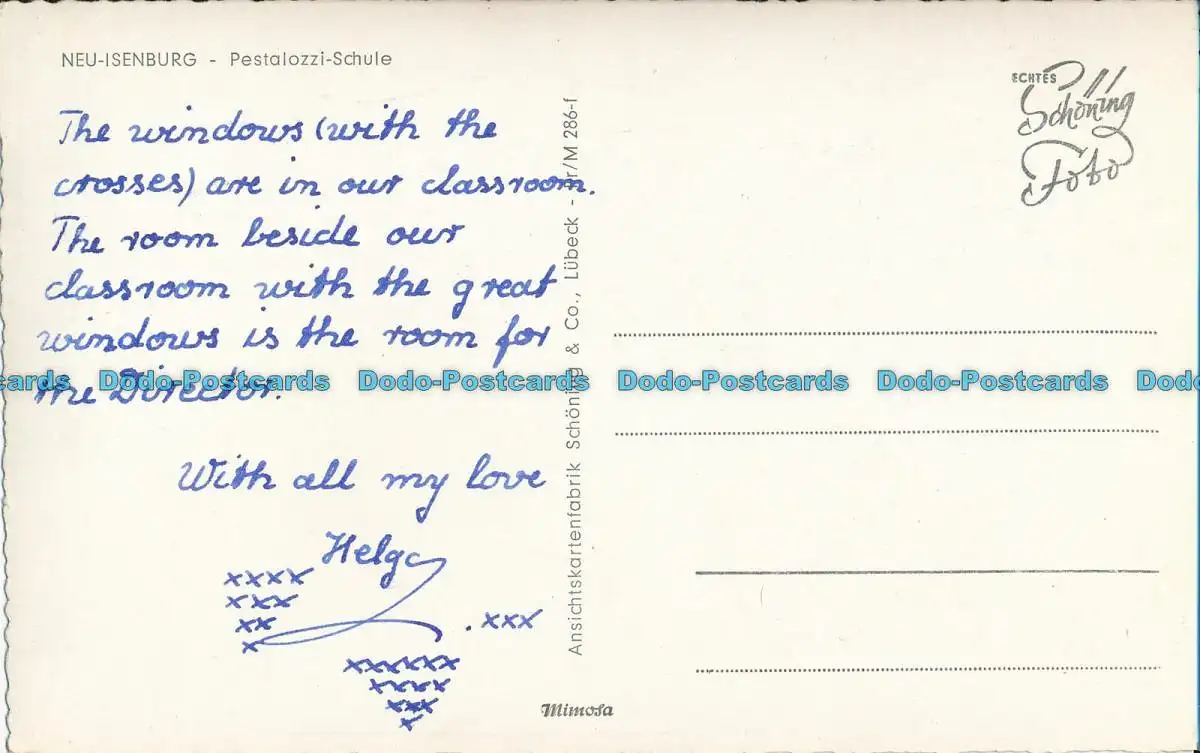 NEU-ISENBURG - Pestalozzi-Schule
The windows (with the
crosses) are in our classroom.
The room beside our
classroom with the great
windows is the room for
the Director.
With all my love
Helga
xxxx
xxx
xx
x
.xxx
xxxxxx
xxxx
xxx
x
Ansichtskartenfabrik Schöning & Co., Lübeck - /M 286-f
ECHTES
Schöning
Foto
Mimosa
cards Dodo-Postcards Dodo-Postcards Dodo-Postcards Dodo-Postcards Dodo